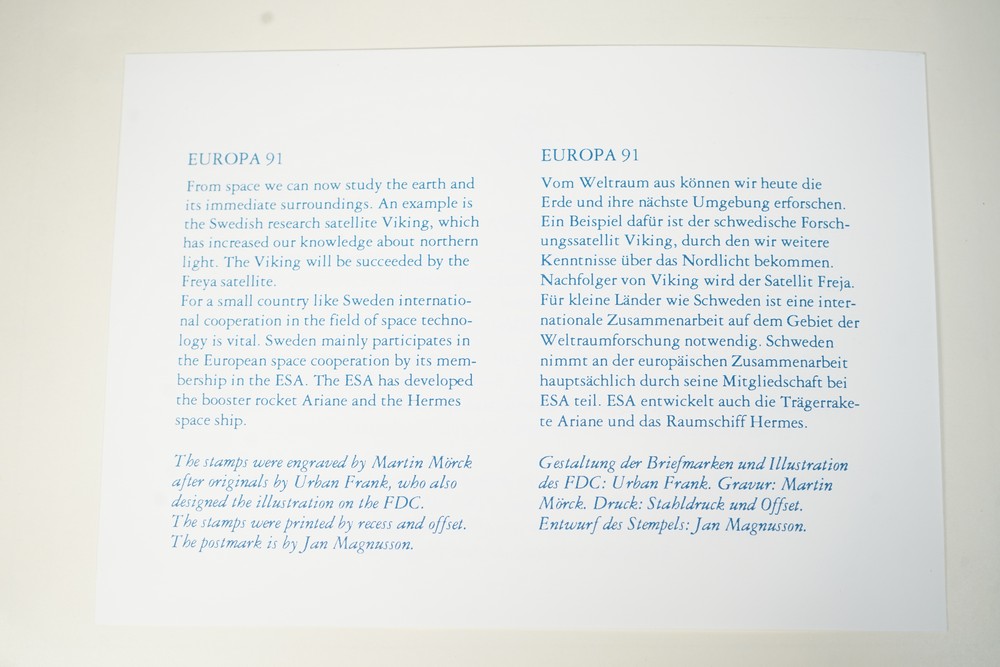 EUROPA 91
From space we can now study the earth and
its immediate surroundings. An example is
the Swedish research satellite Viking, which
has increased our knowledge about northern
light. The Viking will be succeeded by the
Freya satellite.
For a small country like Sweden internatio-
nal cooperation in the field of space techno-
logy is vital. Sweden mainly participates in
the European space cooperation by its mem-
bership in the ESA. The ESA has developed
the booster rocket Ariane and the Hermes
space ship.
The stamps were engraved by Martin Mörck
after originals by Urban Frank, who also
designed the illustration on the FDC.
The stamps were printed by recess and offset.
The postmark is by Jan Magnusson.
EUROPA 91
Vom Weltraum aus können wir heute die
Erde und ihre nächste Umgebung erforschen.
Ein Beispiel dafür ist der schwedische Forsch-
ungssatellit Viking, durch den wir weitere
Kenntnisse über das Nordlicht bekommen.
Nachfolger von Viking wird der Satellit Freja.
Für kleine Länder wie Schweden ist eine inter-
nationale Zusammenarbeit auf dem Gebiet der
Weltraumforschung notwendig. Schweden
nimmt an der europäischen Zusammenarbeit
hauptsächlich durch seine Mitgliedschaft bei
ESA teil. ESA entwickelt auch die Trägerrake-
te Ariane und das Raumschiff Hermes.
Gestaltung der Briefmarken und Illustration
des FDC: Urban Frank. Gravur: Martin
Mörck. Druck: Stahldruck und Offset.
Entwurf des Stempels: Jan Magnusson.